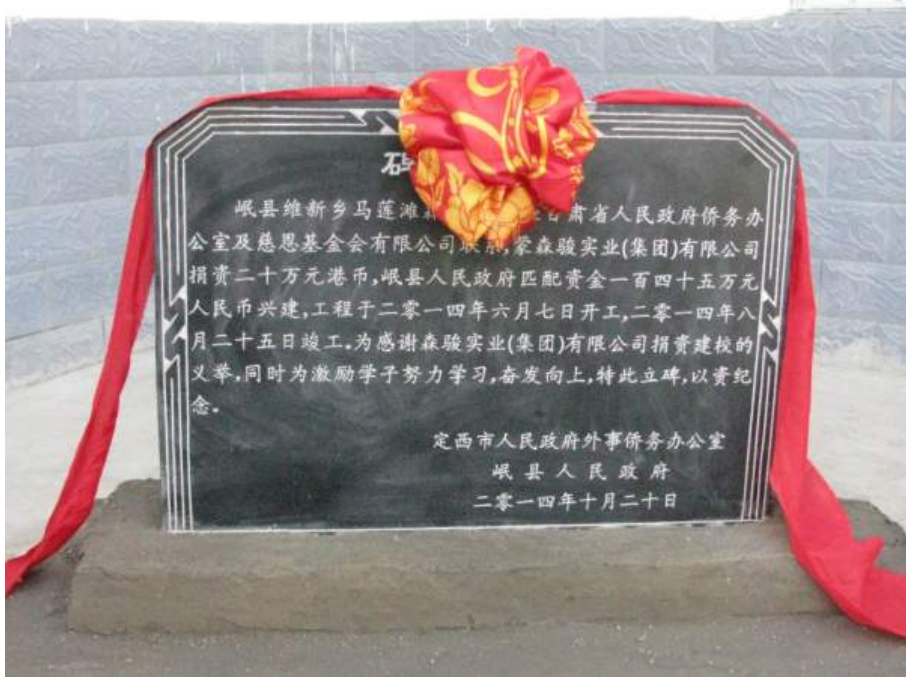 碑
岷县维新乡马莲滩森甘肃省人民政府侨务办
公室及慈恩基金会有限公司联系,蒙森骏实业(集团)有限公司
捐资二十万元港币,岷县人民政府匹配资金一百四十五万元
人民币兴建,工程于二零一四年六月七日开工,二零一四年八
月二十五日竣工.为感谢森骏实业(集团)有限公司捐资建校的
义举.同时为激励学子努力学习,奋发向上,特此立碑,以资纪
念.
定西市人民政府外事侨务办公室
岷县人民政府
二零一四年十月二十日